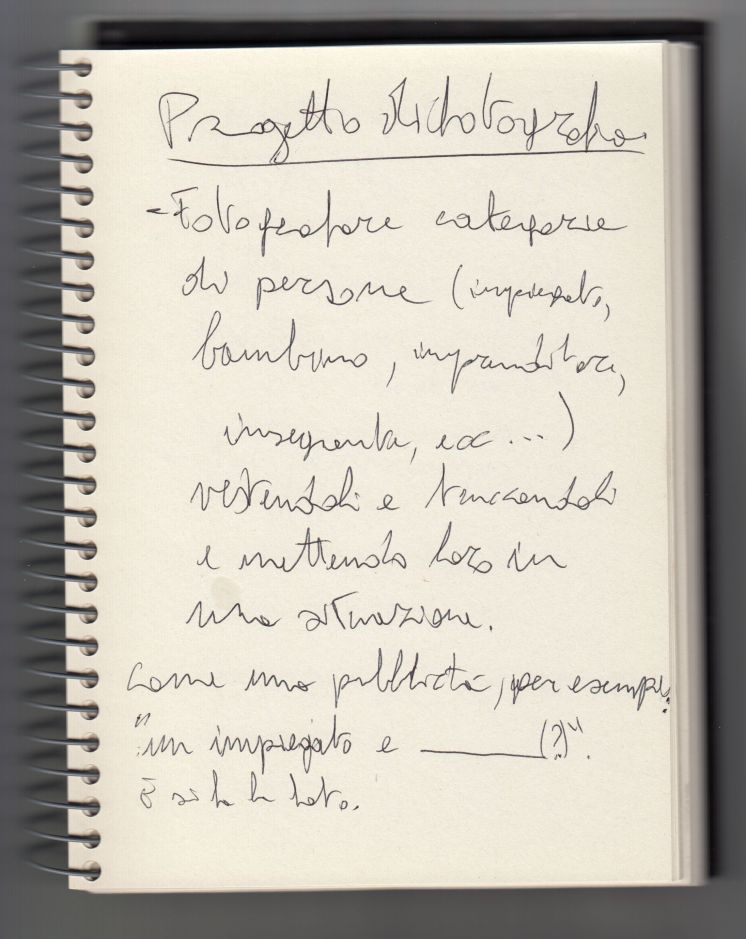 Progetto di fotografia.
- Fotografare categorie
di persone (impiegato,
bambino, imprenditore,
insegnante, ecc ...)
vestendoli e truccandoli
e mettendo loro in
una situazione.
come una pubblicità, per esempio:
"un impiegato è ______(?)".
E si fa la foto.